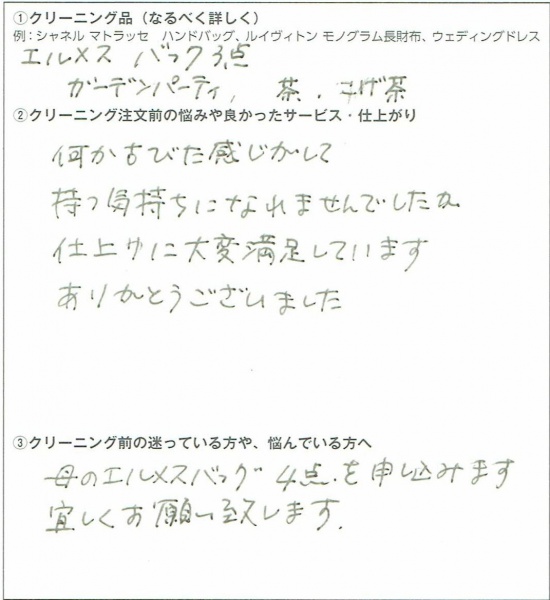 ①クリーニング品（なるべく詳しく）
例：シャネル マトラッセ　ハンドバッグ、ルイヴィトン モノグラム長財布、ウェディングドレス
エルメス バック 3点
ガーデンパーティ, 茶．こげ茶
②クリーニング注文前の悩みや良かったサービス・仕上がり
何か古びた感じがして
持つ気持ちになれませんでしたが
仕上りに大変満足しています
ありがとうございました
③クリーニング前の迷っている方や、悩んでいる方へ
母のエルメスバッグ 4点を申し込みます
宜しくお願い致します.